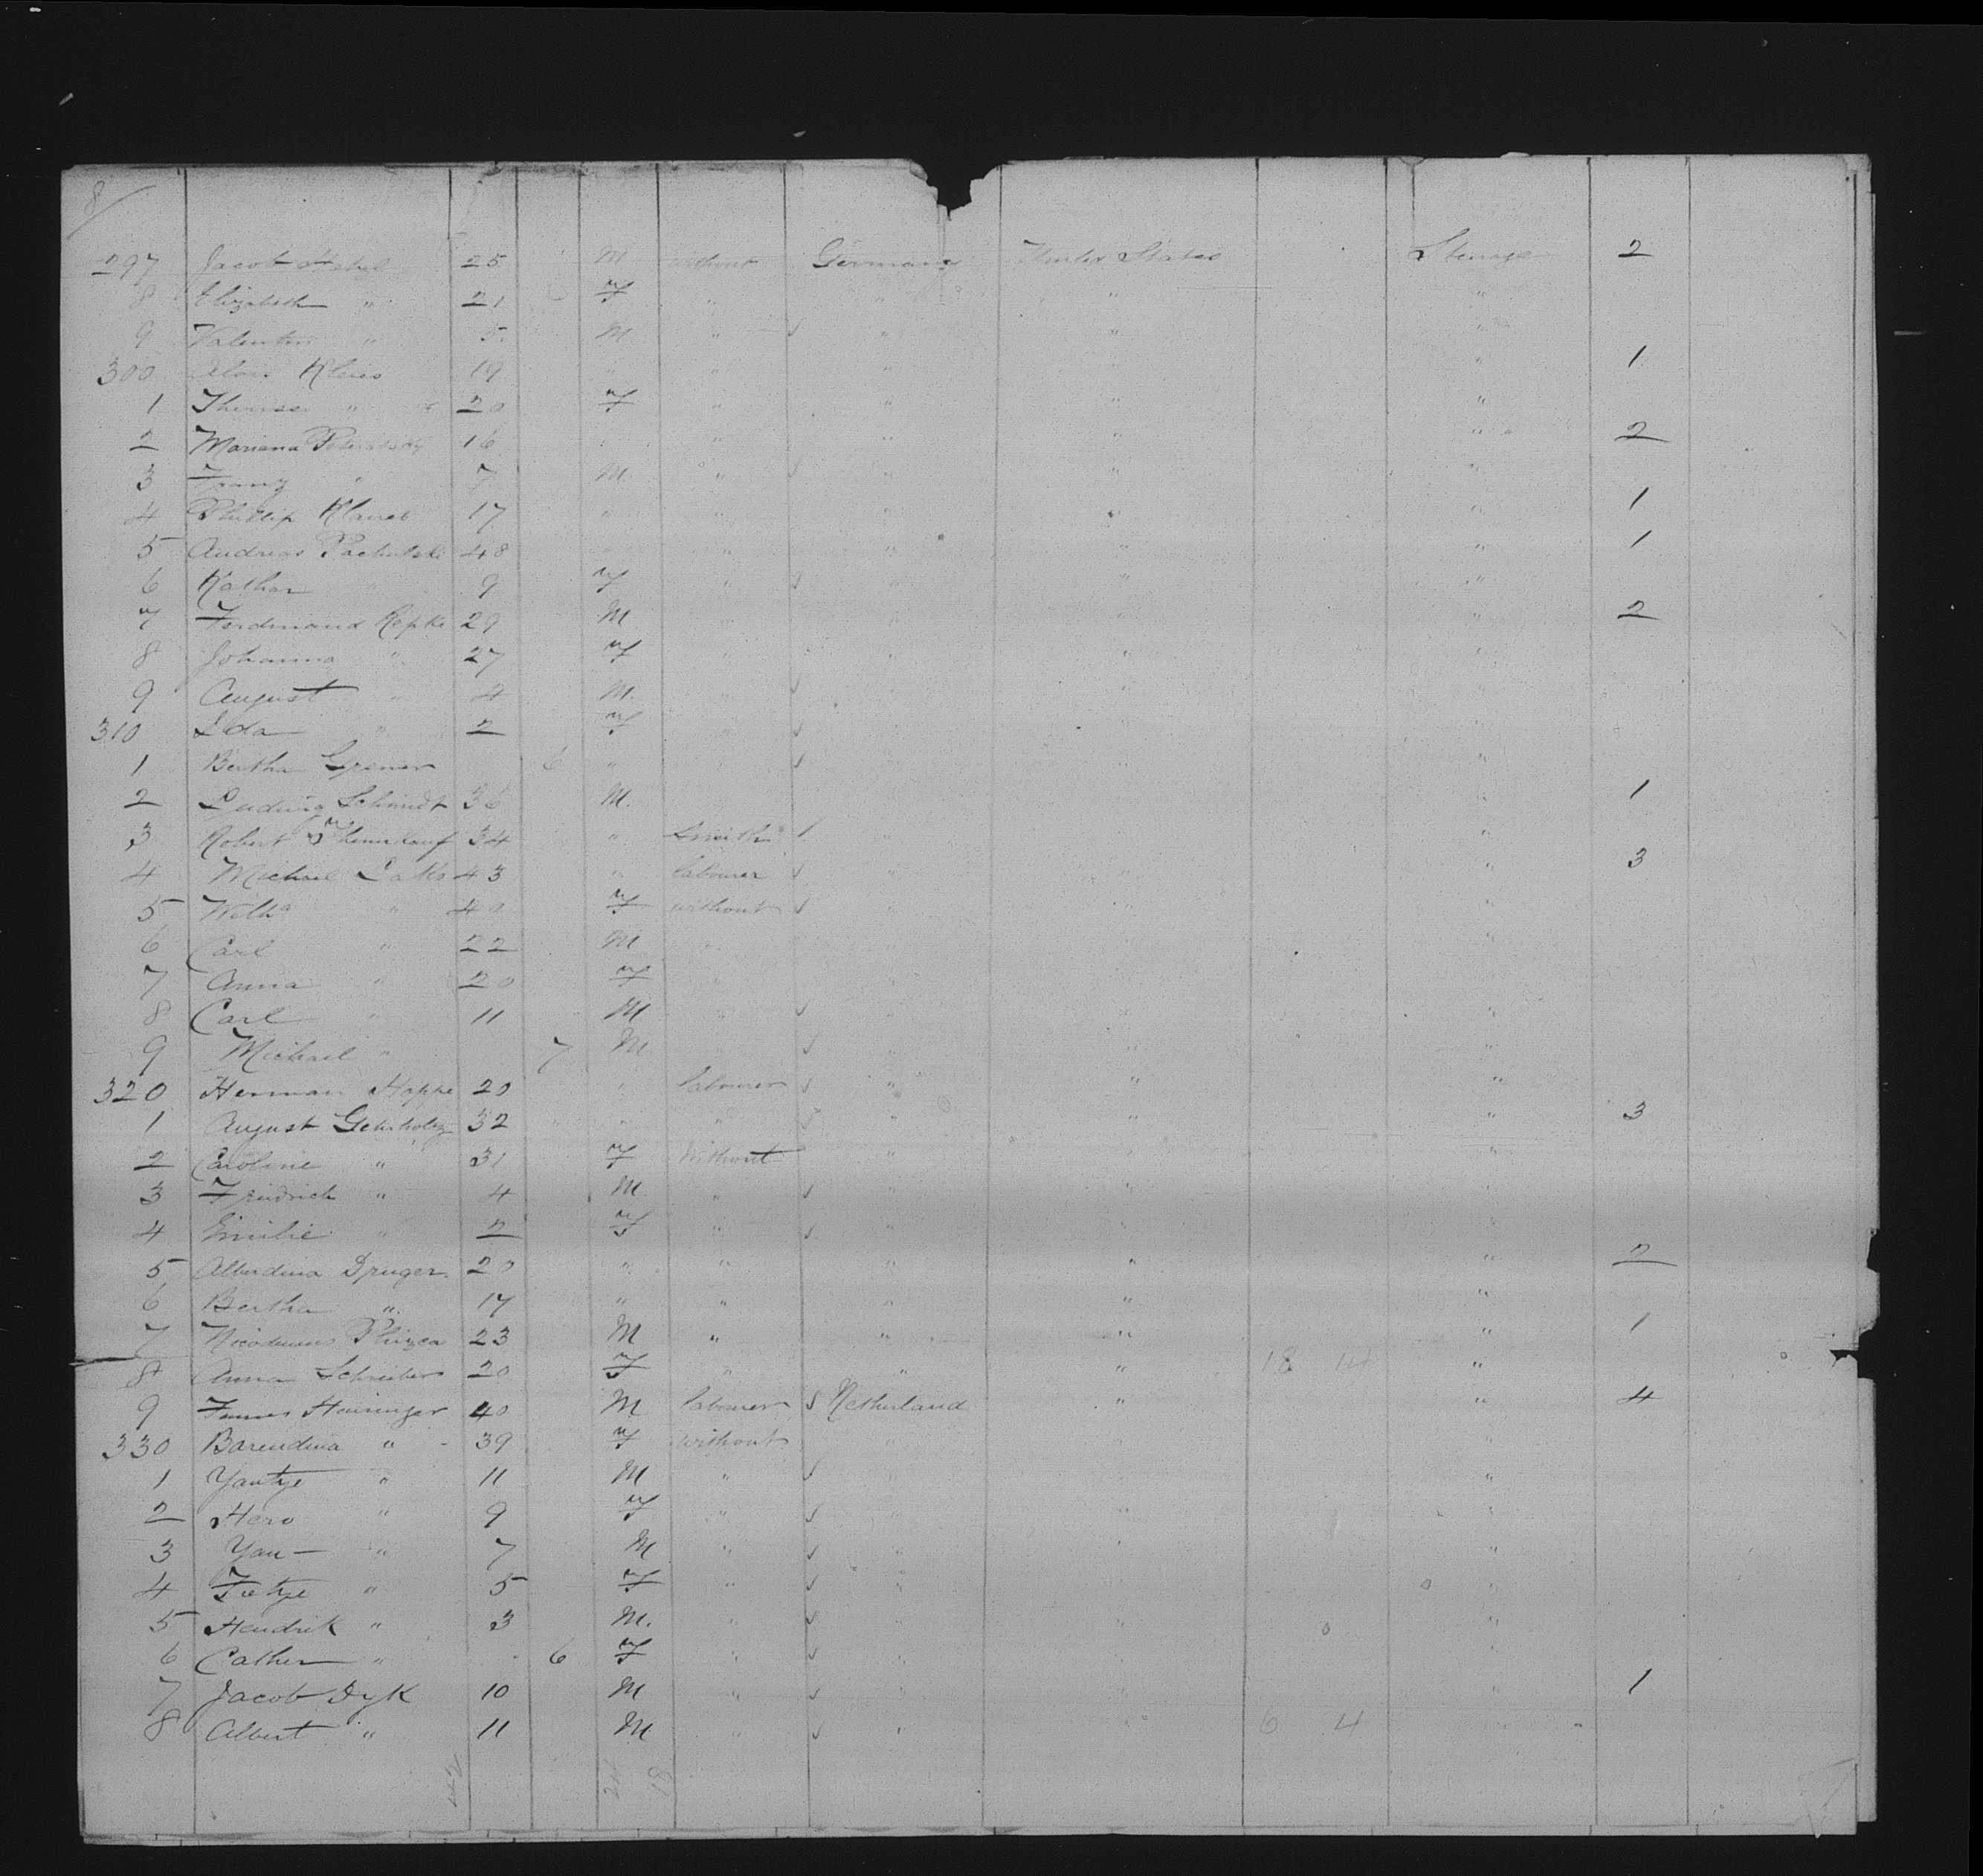 8/
297 Jacob 25 M without Germany United States Steerage 2
8 Elizabeth " 21 F " " " "
9 Valentin " 5 M " " " "
300 Klais 19 " " " " 1
1 Therese " 20 F " " " "
2 Mariana 16 " " " " 2
3 Franz " 7 M " " " "
4 Phillip 17 " " " " " 1
5 Andreas Pachulski 48 " " " " 1
6 Kathar 9 F " " " "
7 Ferdinand Repke 29 M " 2
8 Johanna " 27 F " " "
9 August " 4 M. "
310 Ida " 2 F "
1 Bertha 6 " "
2 Ludwig Schmidt 36 M. " 1
3 Robert 34 " Smith " "
4 Michael 43 " labourer " " 3
5 Wilh " 40 F without " "
6 Carl " 22 M "
7 Anna " 20 F
8 Carl " 11 M " "
9 Michael " 7 M " "
320 Herman Hoppe 20 " labourer " " "
1 August Gehrholz 32 " " " " " 3
2 Caroline " 31 F Without " " "
3 Friedrich " 4 M " " " "
4 Emilie " 2 F " " " "
5 Alberdina Druger 20 " " " " " 2
6 Bertha " 17 " " " " "
7 Nicodemus 23 M " " " " 1
8 Anna Schreiber 20 F " " " 18 14 "
9 Heuninger 40 M labourer Netherland " " 4
330 Barendina " 39 F without " "
1 Yantje " 11 M " " "
2 Hero " 9 F " " "
3 Yan " 7 M " " " "
4 " 5 F " " "
5 Hendrik " 3 M. " " " "
6 Cather " 6 F " " " "
7 Jacob Dyk 10 M " " " 1
8 Albert " 11 M " " " 6 4 "